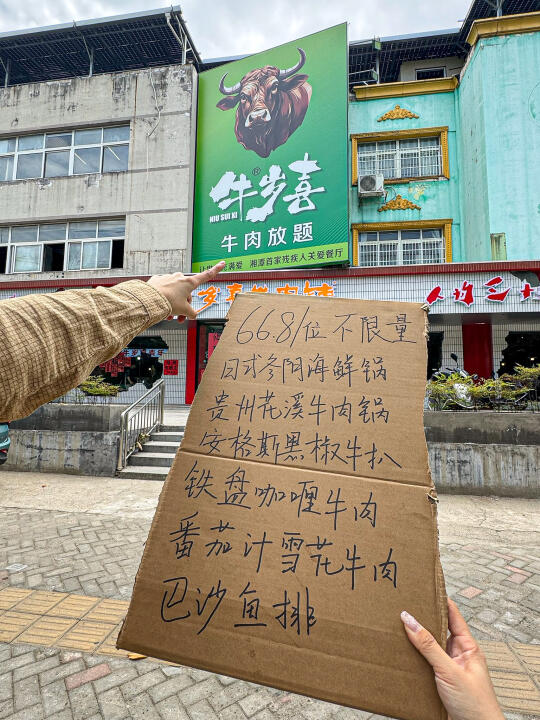 ®
牛岁喜
NIU SUI XI
牛肉放题
满爱 湘潭首家残疾人关爱餐厅
岁喜
人均三十
66.8/位 不限量
日式冬阴海鲜锅
贵州花溪牛肉锅
安格斯黑椒牛扒
铁盘咖喱牛肉
番茄汁雪花牛肉
巴沙鱼排